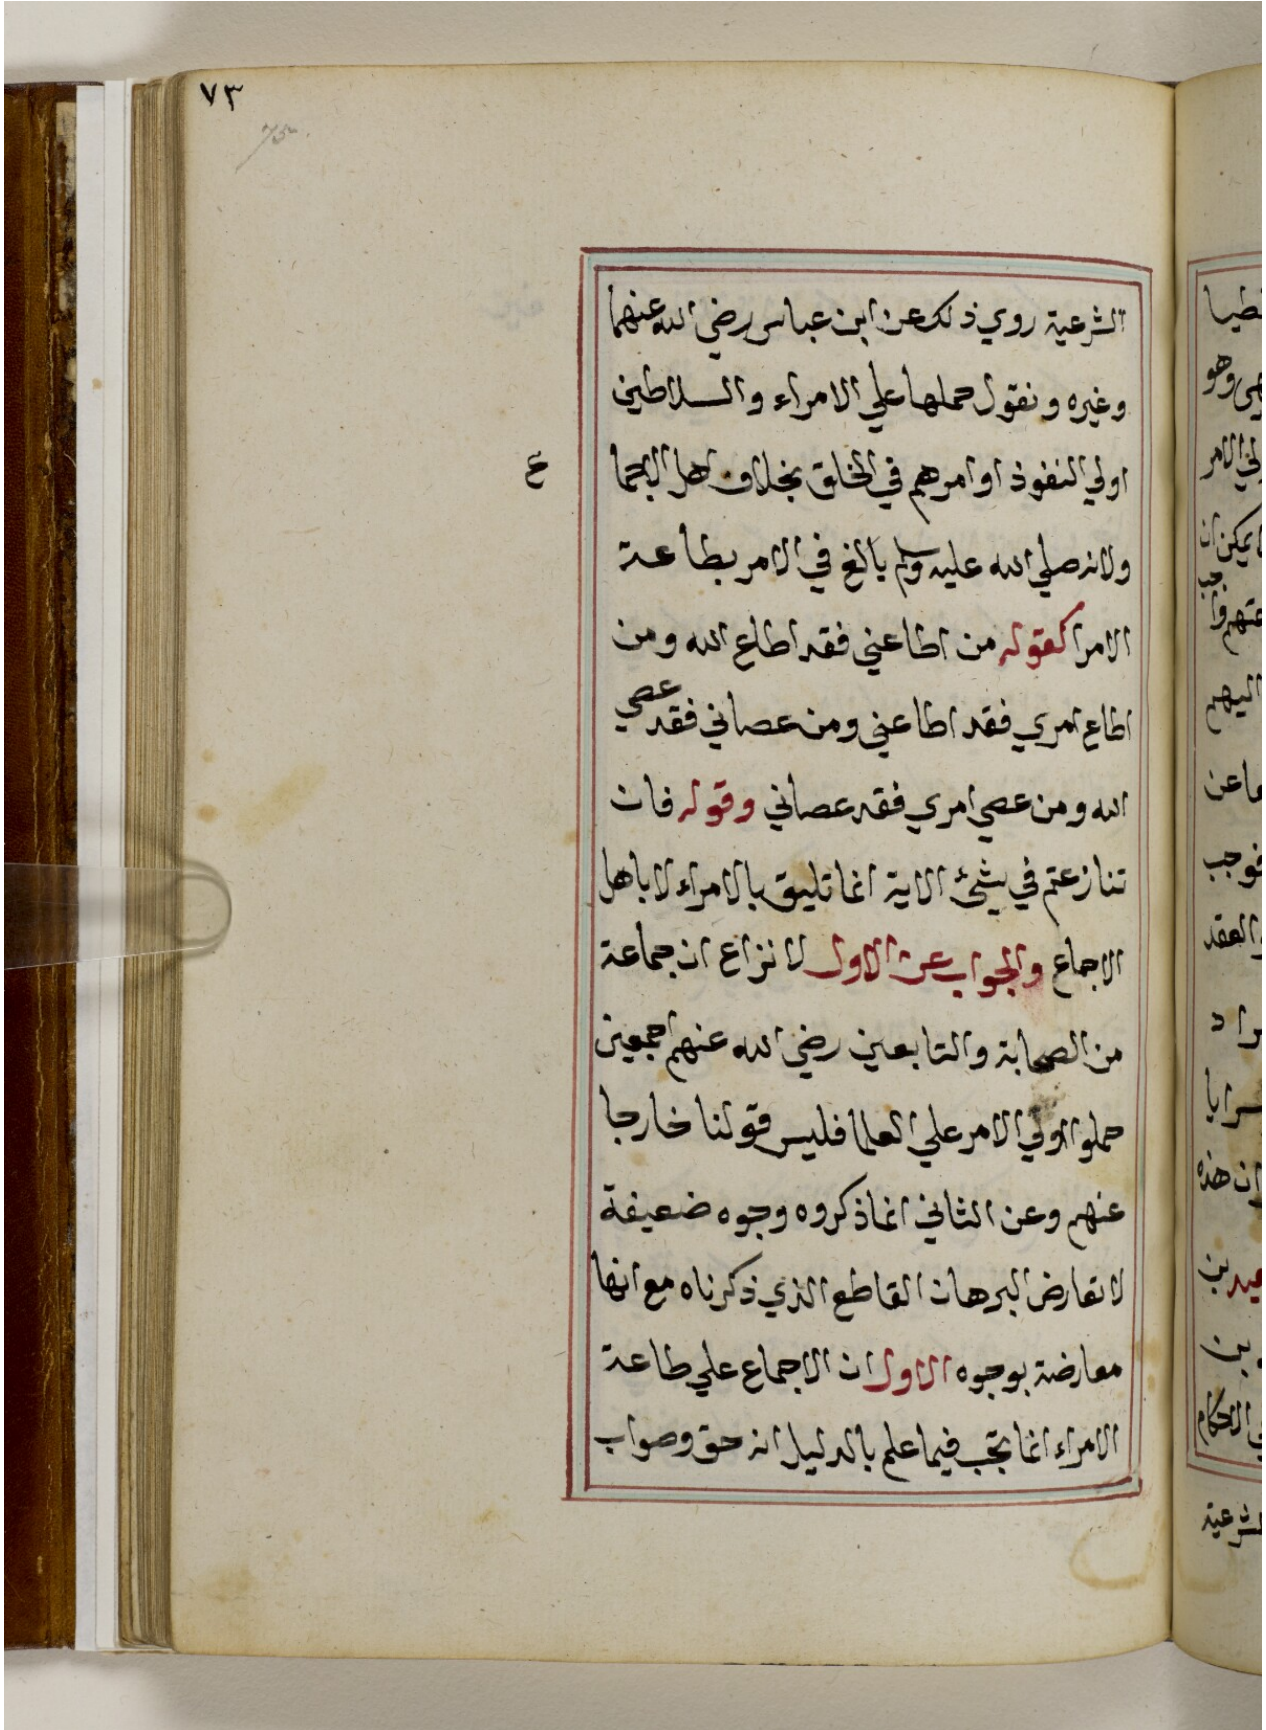 ٧٣
73
الشرعية روي ذلك عن ابن عباس رضي الله عنهما
وغيره ونقول حملها علي الامراء والسلاطين
اولي النفوذ اوامرهم في الخلق بخلاف اهل الاجما
ع
ولانه صلي الله عليه وسلم بالغ في الامر بطاعة
الامرا كقوله من اطاعني فقد اطاع الله ومن
اطاع امري فقد اطاعني ومن عصاني فقد عصي
الله ومن عصي امري فقد عصاني وقوله فان
تنازعتم في شئ الاية انما تليق بالامراء لا باهل
الاجماع والجواب عن الاول لا نزاع ان جماعة
من الصحابة والتابعين رضي الله عنهم اجمعين
حملوا اولي الامر علي العلما فليس قولنا خارجا
عنهم وعن الثاني انما ذكروه وجوه ضعيفة
لا تعارض البرهان القاطع الذي ذكرناه مع انها
معارضة بوجوه الاول ان الاجماع علي طاعة
الامراء انما يجب فيما علم بالدليل انه حق وصواب
لي الامر
يمكن ان
اليهم
ما عن
فوجب
والعقد
ان هذه
بن
الشرعية